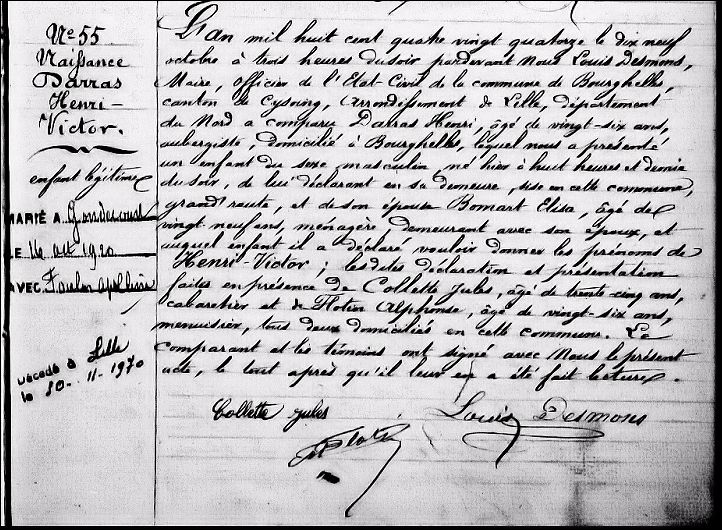 N° 55
Naissance
Darras
Henri-
Victor.
enfant légitime
MARIÉ A Gondecourt
LE 14 oct 1920
AVEC Poulon Apolline
Décédé à Lille
le 10-11-1970
L'an mil huit cent quatre vingt quatorze le dix neuf
octobre à trois heures du soir pardevant Nous Louis Desmons,
Maire, Officier de l'Etat Civil de la commune de Bourghelles,
canton de Cysoing, Arrondissement de Lille, département
du Nord a comparu Darras Henri, âgé de vingt-six ans,
aubergiste, domicilié à Bourghelles, lequel nous a présenté
un enfant du sexe masculin né hier à huit heures et demie
du soir, de lui déclarant en sa demeure, sise en cette commune,
grand'route, et de son épouse Bomart Elisa, âgé de
vingt-neuf ans, ménagère, demeurant avec son époux, et
auquel enfant il a déclaré vouloir donner les prénoms de
Henri-Victor; les dites déclaration et présentation
faites en présence de Collette Jules, âgé de trente-cinq ans,
cabaretier et de Flotin Alphonse, âgé de vingt-six ans,
menuisier, tous deux domiciliés en cette commune. Le
comparant et les témoins ont signé avec Nous le présent
acte, le tout après qu'il leur en a été fait lecture.
Collette Jules
Louis Desmons